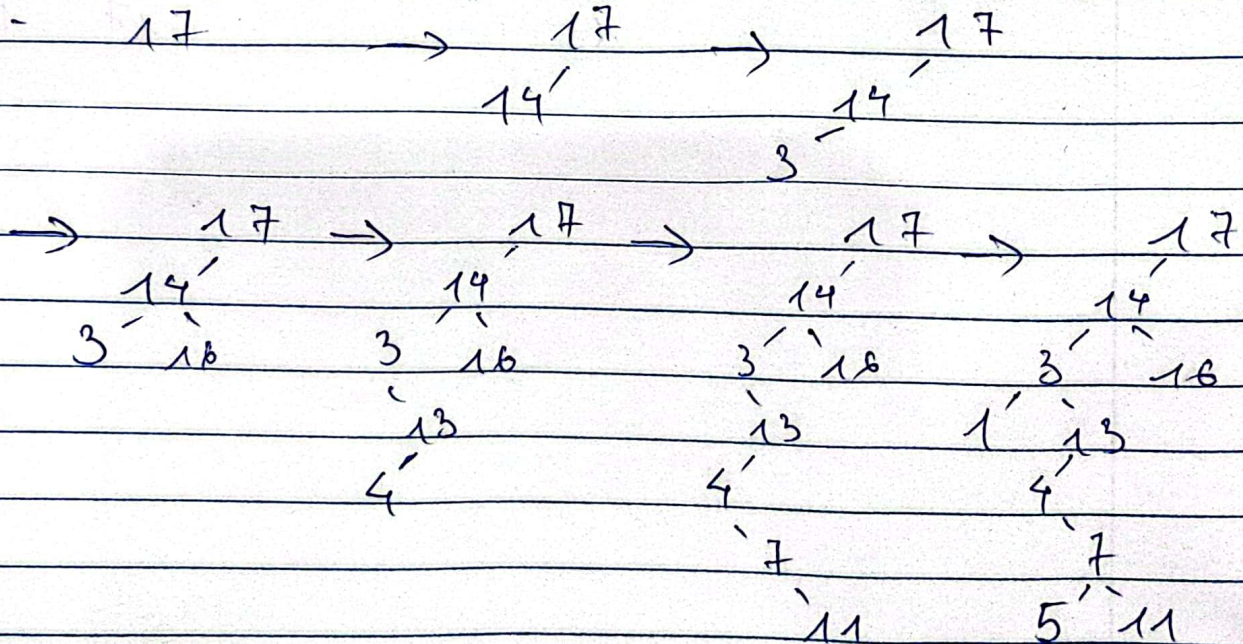 - 17 → 17 → 17
14 14
3
→ 17 → 17 → 17 → 17
14 14 14 14
3 16 3 16 3 16 3 16
13 13 1 13
4 4 4
7 7
11 5 11